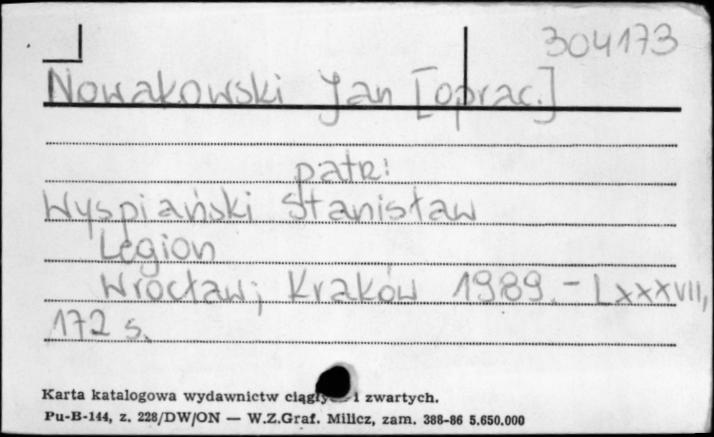 304173
Nowakowski Jan [oprac.]
patrz:
Wyspiański Stanisław
Legion
Wrocław; Kraków 1989.- LXXXVII,
172 s.
Karta katalogowa wydawnictw ciągłych i zwartych.
Pu-B-144, z. 228/DW/ON — W.Z.Graf. Milicz, zam. 388-86 5.650.000